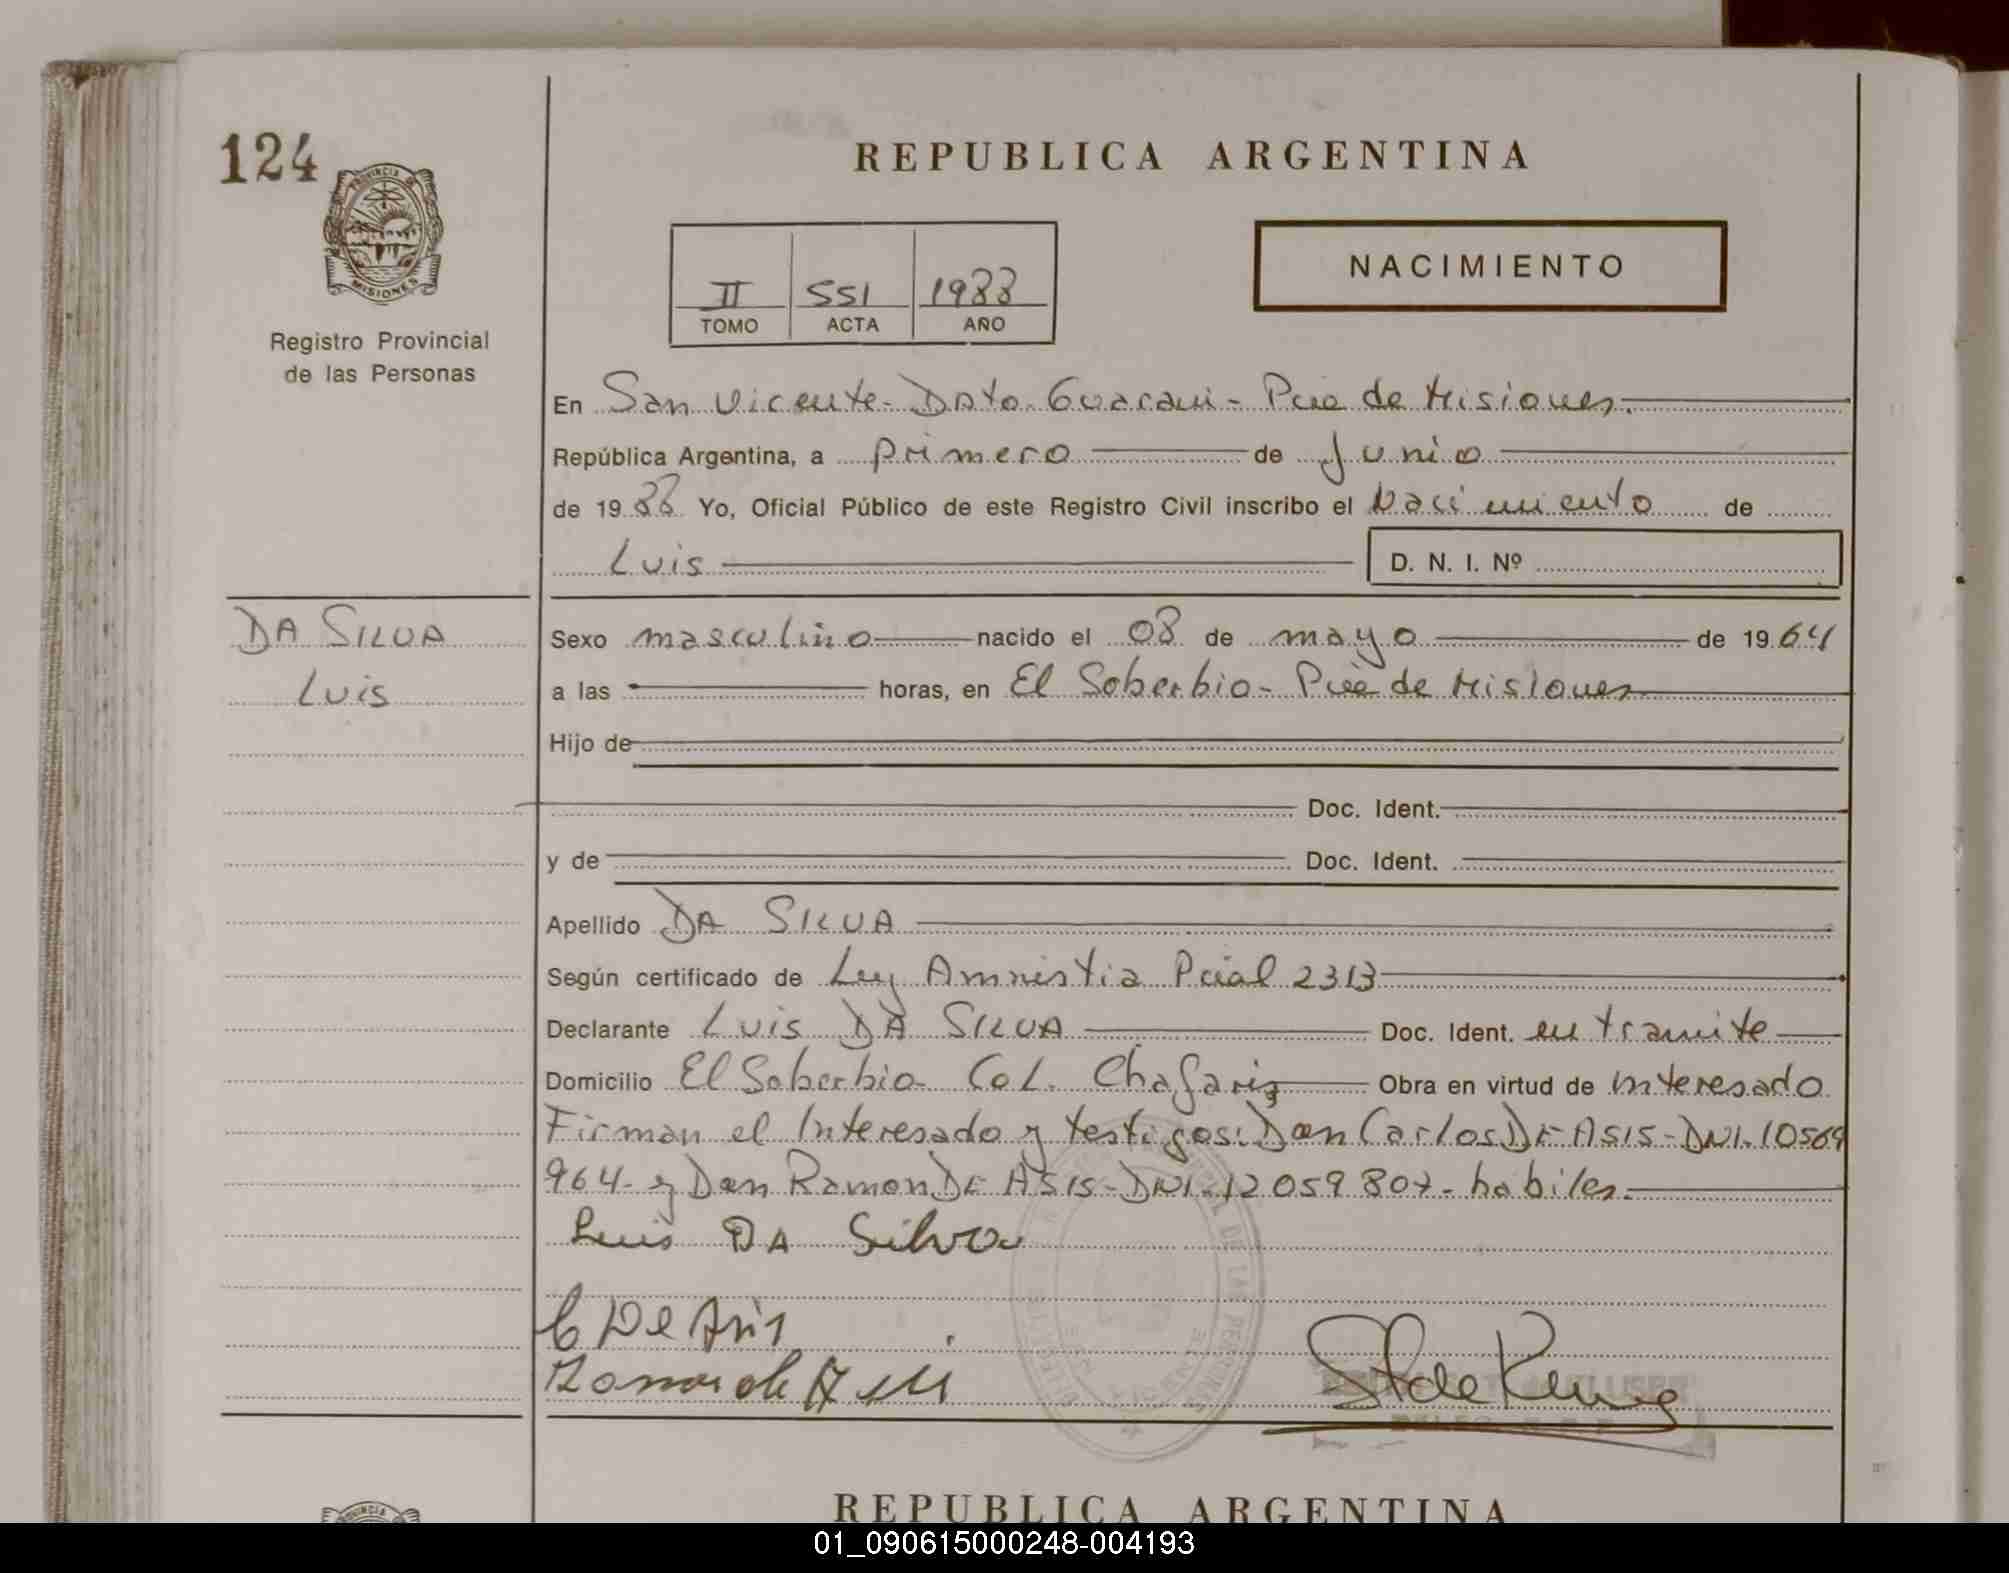 124
REPUBLICA ARGENTINA
PROVINCIA DE
MISIONES
Registro Provincial
de las Personas
II 551 1988
TOMO ACTA AÑO
NACIMIENTO
En San Vicente - Dpto. Guarani - Pcia de Misiones.
República Argentina, a primero de Junio
de 19 88 Yo, Oficial Público de este Registro Civil inscribo el Nacimiento de
Luis D. N. I. Nº
DA SILVA
Luis
Sexo masculino nacido el 08 de mayo de 19 64
a las horas, en El Soberbio - Pcia de Misiones
Hijo de
Doc. Ident.
y de Doc. Ident.
Apellido DA SILVA
Según certificado de Ley Amnistia Pcial 2313
Declarante Luis DA SILVA Doc. Ident. en tramite
Domicilio El Soberbio - Col. Chafariz Obra en virtud de interesado
Firman el Interesado y testigos: Don Carlos DE ASIS - DNI. 10569
964 - y Don Ramon DE ASIS - DNI. 12059807 - habiles.
Luis DA Silva
C De Asis
Ramon de Asis
REPUBLICA ARGENTINA
01_090615000248-004193